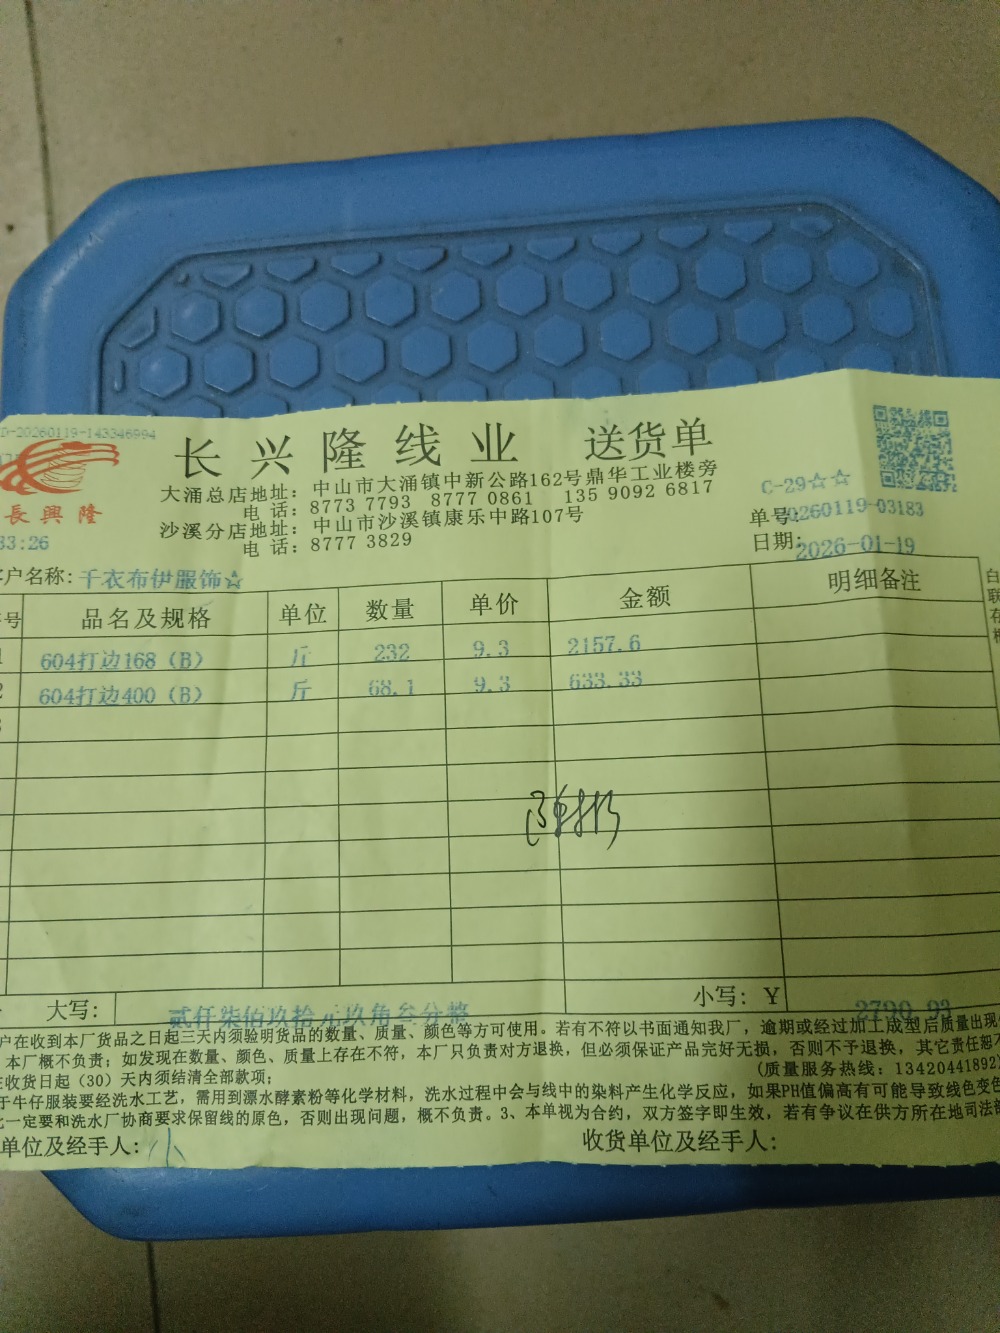 D-20260119-143346994
長興隆
33:26
长兴隆线业 送货单
大涌总店地址：中山市大涌镇中新公路162号鼎华工业楼旁
电话：8773 7793 8777 0861 135 9092 6817
沙溪分店地址：中山市沙溪镇康乐中路107号
电话：8777 3829
C-29☆☆
单号：20260119-03183
日期：2026-01-19
客户名称：千衣布伊服饰☆
号 品名及规格 单位 数量 单价 金额 明细备注
1 604打边168（B） 斤 232 9.3 2157.6
2 604打边400（B） 斤 68.1 9.3 633.33
大写： 贰仟柒佰玖拾元玖角叁分整 小写：￥ 2790.93
户在收到本厂货品之日起三天内须验明货品的数量、质量、颜色等方可使用。若有不符以书面通知我厂，逾期或经过加工成型后质量出现
本厂概不负责；如发现在数量、颜色、质量上存在不符，本厂只负责对方退换，但必须保证产品完好无损，否则不予退换，其它责任恕不
收货日起（30）天内须结清全部款项； （质量服务热线：13420441892）
于牛仔服装要经洗水工艺，需用到漂水酵素粉等化学材料，洗水过程中会与线中的染料产生化学反应，如果PH值偏高有可能导致线色变色
一定要和洗水厂协商要求保留线的原色，否则出现问题，概不负责。3、本单视为合约，双方签字即生效，若有争议在供方所在地司法部
单位及经手人：小 收货单位及经手人：